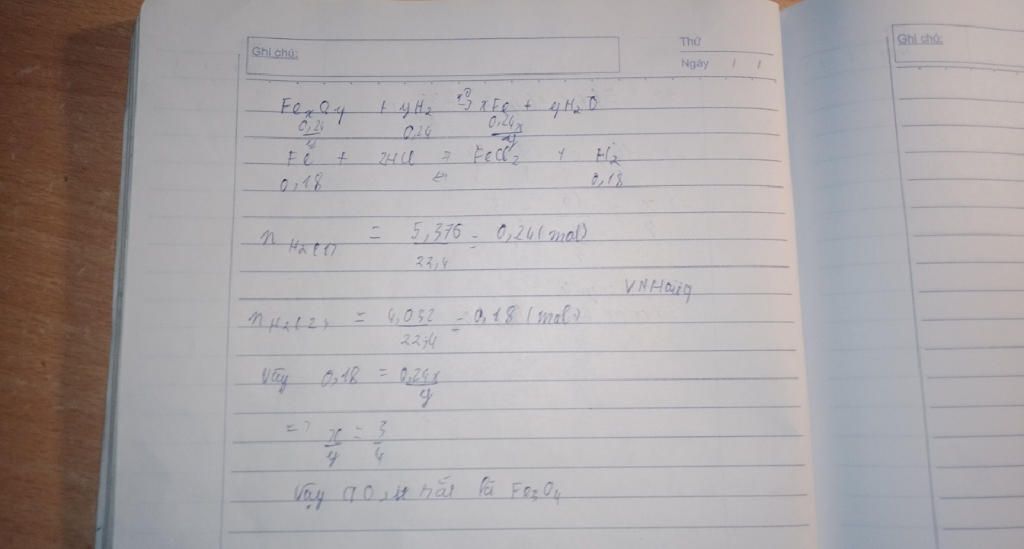 Ghi chú:
Thứ
Ngày / /
Ghi chú:
FexOy + yH2 t° → xFe + yH2O
0,24/y 0,24 0,24x/y
Fe + 2HCl → FeCl2 + H2
0,18 ← 0,18
n H2(1) = 5,376/22,4 = 0,24 (mol)
VNHoàng
nH2(2) = 4,032/22,4 = 0,18 (mol)
Vậy 0,18 = 0,24x/y
=> x/y = 3/4
Vậy sắt là Fe3O4